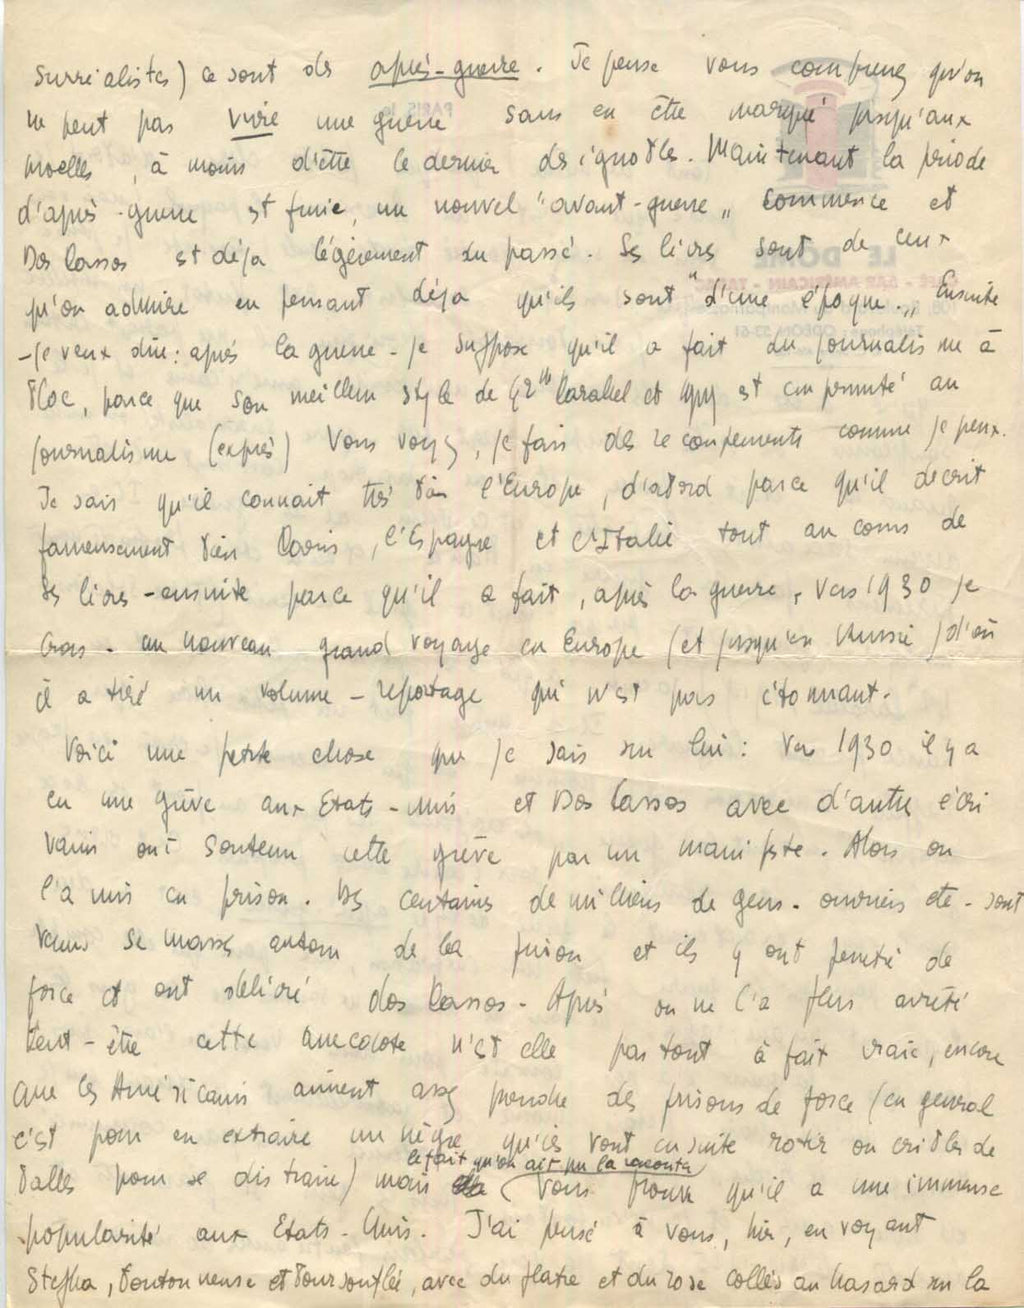 surréalistes) ce sont des après-guerre. Je pense vous comprenez qu'on
ne peut pas vivre une guerre sans en être marqué jusqu'aux
moelles, à moins d'être le dernier des ignobles. Maintenant la période
d'après-guerre est finie, un nouvel "avant-guerre" commence et
Dos Passos est déja légèrement du passé. Ses livres sont de ceux
qu'on admire en pensant déja qu'ils sont "d'une époque." Ensuite
-je veux dire: après la guerre - je suppose qu'il a fait du journalisme à
bloc, parce que son meilleur style de 42th Parallel et 1919 est emprunté au
journalisme (exprès) Vous voyez, je fais des recoupements comme je peux.
Je sais qu'il connait très bien l'Europe, d'abord parce qu'il décrit
fameusement bien Paris, l'Espagne et l'Italie tout au cours de
ses livres - ensuite parce qu'il a fait, après la guerre, vers 1930 je
crois - un nouveau grand voyage en Europe (et jusqu'en Russie) d'où
il a tiré un volume - reportage qui n'est pas étonnant.
Voici une petite chose que je sais sur lui: Vers 1930 il y a
eu une grève aux Etats-unis et Dos Passos avec d'autres écri
vains ont soutenu cette grève par un manifeste. Alors on
l'a mis en prison. Des centaines de milliers de gens - ouvriers etc - sont
venus se masser autour de la prison et ils y ont pénétré de
force et ont délivré dos Passos - Après on ne l'a plus arrêté
Peut-être cette anecdote n'est elle pas tout à fait vraie, encore
que les Américains aiment assez prendre des prisons de force (en général
c'est pour en extraire un nègre qu'ils vont ensuite rotir ou cribler de
balles pour se distraire) mais le fait qu'on ait pu la raconter vous prouve qu'il a une immense
popularité aux Etats-Unis. J'ai pensé à vous, hier, en voyant
Stepha, boutonneuse et boursouflée, avec du platre et du rose collés au hasard sur la
LE DÔME
BAR AMÉRICAIN - TABAC
PARIS